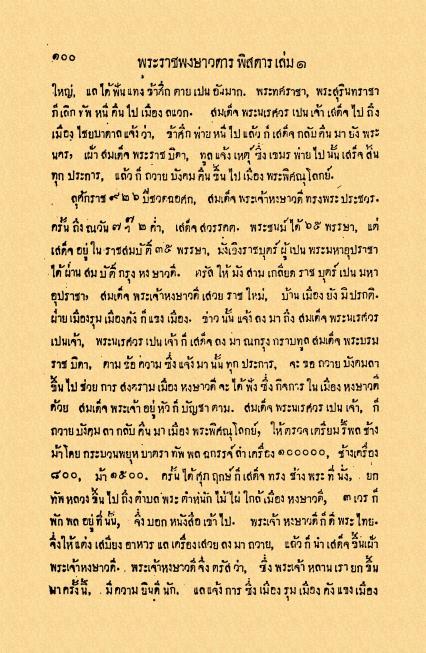 ๑๐๐ พระราชพงษาวดาร พิสดาร เล่ม ๑
ใหญ่, แล ได้ ฟัน แทง ข้าศึก ตาย เปน อันมาก. พระทศราชา, พระสุรินทราชา
ก็ เลิก ทัพ หนี คืน ไป เมือง ลแวก. สมเดจ์ พระนเรศวร เปน เจ้า เสด็จ ไป ถึง
เมือง ไชยบาดาล แจ้ง ว่า, ข้าศึก พ่าย หนี ไป แล้ว ก็ เสด็จ กลับ คืน มา ยัง พระ
นคร, เฝ้า สมเด็จ พระราช บิดา, ทูล แจ้ง เหตุ ซึ่ง เขมร พ่าย ไป นั้น เสร็จ สิ้น
ทุก ประการ, แล้ว ก็ ถวาย บังคม คืน ขึ้น ไป เมือง พระพิศณุโลกย์.
ลุศักราช ๙๒๖ ปีชวดฉอศก, สมเด็จ พระเจ้าหงษาวดี ทรงพระ ประชวร.
ครั้น ถึง ณวัน ๗ ๒ ค่ำ, เสด็จ สวรรคต. พระชนม์ ได้ ๖๕ พรรษา, แต่
เสด็จ อยู่ ใน ราชสมบัติ ๓๕ พรรษา, มังเอิงราชบุตร์ ผู้ เปน พระมหาอุปราชา
ได้ ผ่าน สมบัติ กรุง หงษาวดี. ตรัส ให้ มังสามเกลียด ราชบุตร์ เปน มหา
อุปราชา, สมเด็จ พระเจ้าหงษาวดี เสวย ราช ใหม่, บ้าน เมือง ยัง มิ ปรกติ.
ฝ่าย เมืองรุม เมืองคัง ก็ แขง เมือง. ข่าว นั้น แจ้ง ลง มา ถึง สมเด็จ พระนเรศวร
เปนเจ้า, พระนเรศวร เปน เจ้า ก็ เสด็จ ลง มา ณกรุง กราบทูล สมเด็จ พระบรม
ราช บิดา, ตาม ข้อ ความ ซึ่ง แจ้ง มา นั้น ทุก ประการ, จะ ขอ ถวาย บังคมลา
ขึ้น ไป ช่วย การ สงคราม เมือง หงษาวดี จะ ได้ ฟัง ซึ่ง กิจการ ใน เมือง หงษาวดี
ด้วย สมเด็จ พระเจ้า อยู่ หัว ก็ บัญชา ตาม. สมเด็จ พระนเรศวร เปน เจ้า, ก็
ถวาย บังคม ลา กลับ คืน มา เมือง พระพิศณุโลกย์, ให้ ตรวจ เตรียม รี้พล ช้าง
ม้า โดย กระบวนพยุห บาตรา ทัพ พล ฉกรรจ์ ลำ เครื่อง ๑๐๐๐๐๐, ช้างเครื่อง
๘๐๐, ม้า ๑๕๐๐. ครั้น ได้ ศุภ ฤกษ์ ก็ เสด็จ ทรง ช้าง พระ ที่ นั่ง, ยก
ทัพ หลวง ขึ้น ไป ถึง ตำบล พระ ตำหนัก ไม้ ไผ่ ใกล้ เมือง หงษาวดี, ๓ เวร ก็
พัก พล อยู่ ที่ นั้น, จึ่ง บอก หนังสือ เข้า ไป. พระเจ้า หงษาวดี ก็ ดี พระไทย.
จึ่ง ให้ แต่ง เสบียง อาหาร แล เครื่อง เสวย ลง มา ถวาย, แล้ว ก็ นำ เสด็จ ขึ้น เฝ้า
พระเจ้าหงษาวดี. พระเจ้าหงษาวดี จึ่ง ตรัส ว่า, ซึ่ง พระเจ้า หลาน เรา ยก ขึ้น
มา ครั้ง นี้, มี ความ ยินดี นัก. แล แจ้ง การ ซึ่ง เมือง รุม เมือง คัง แขง เมือง